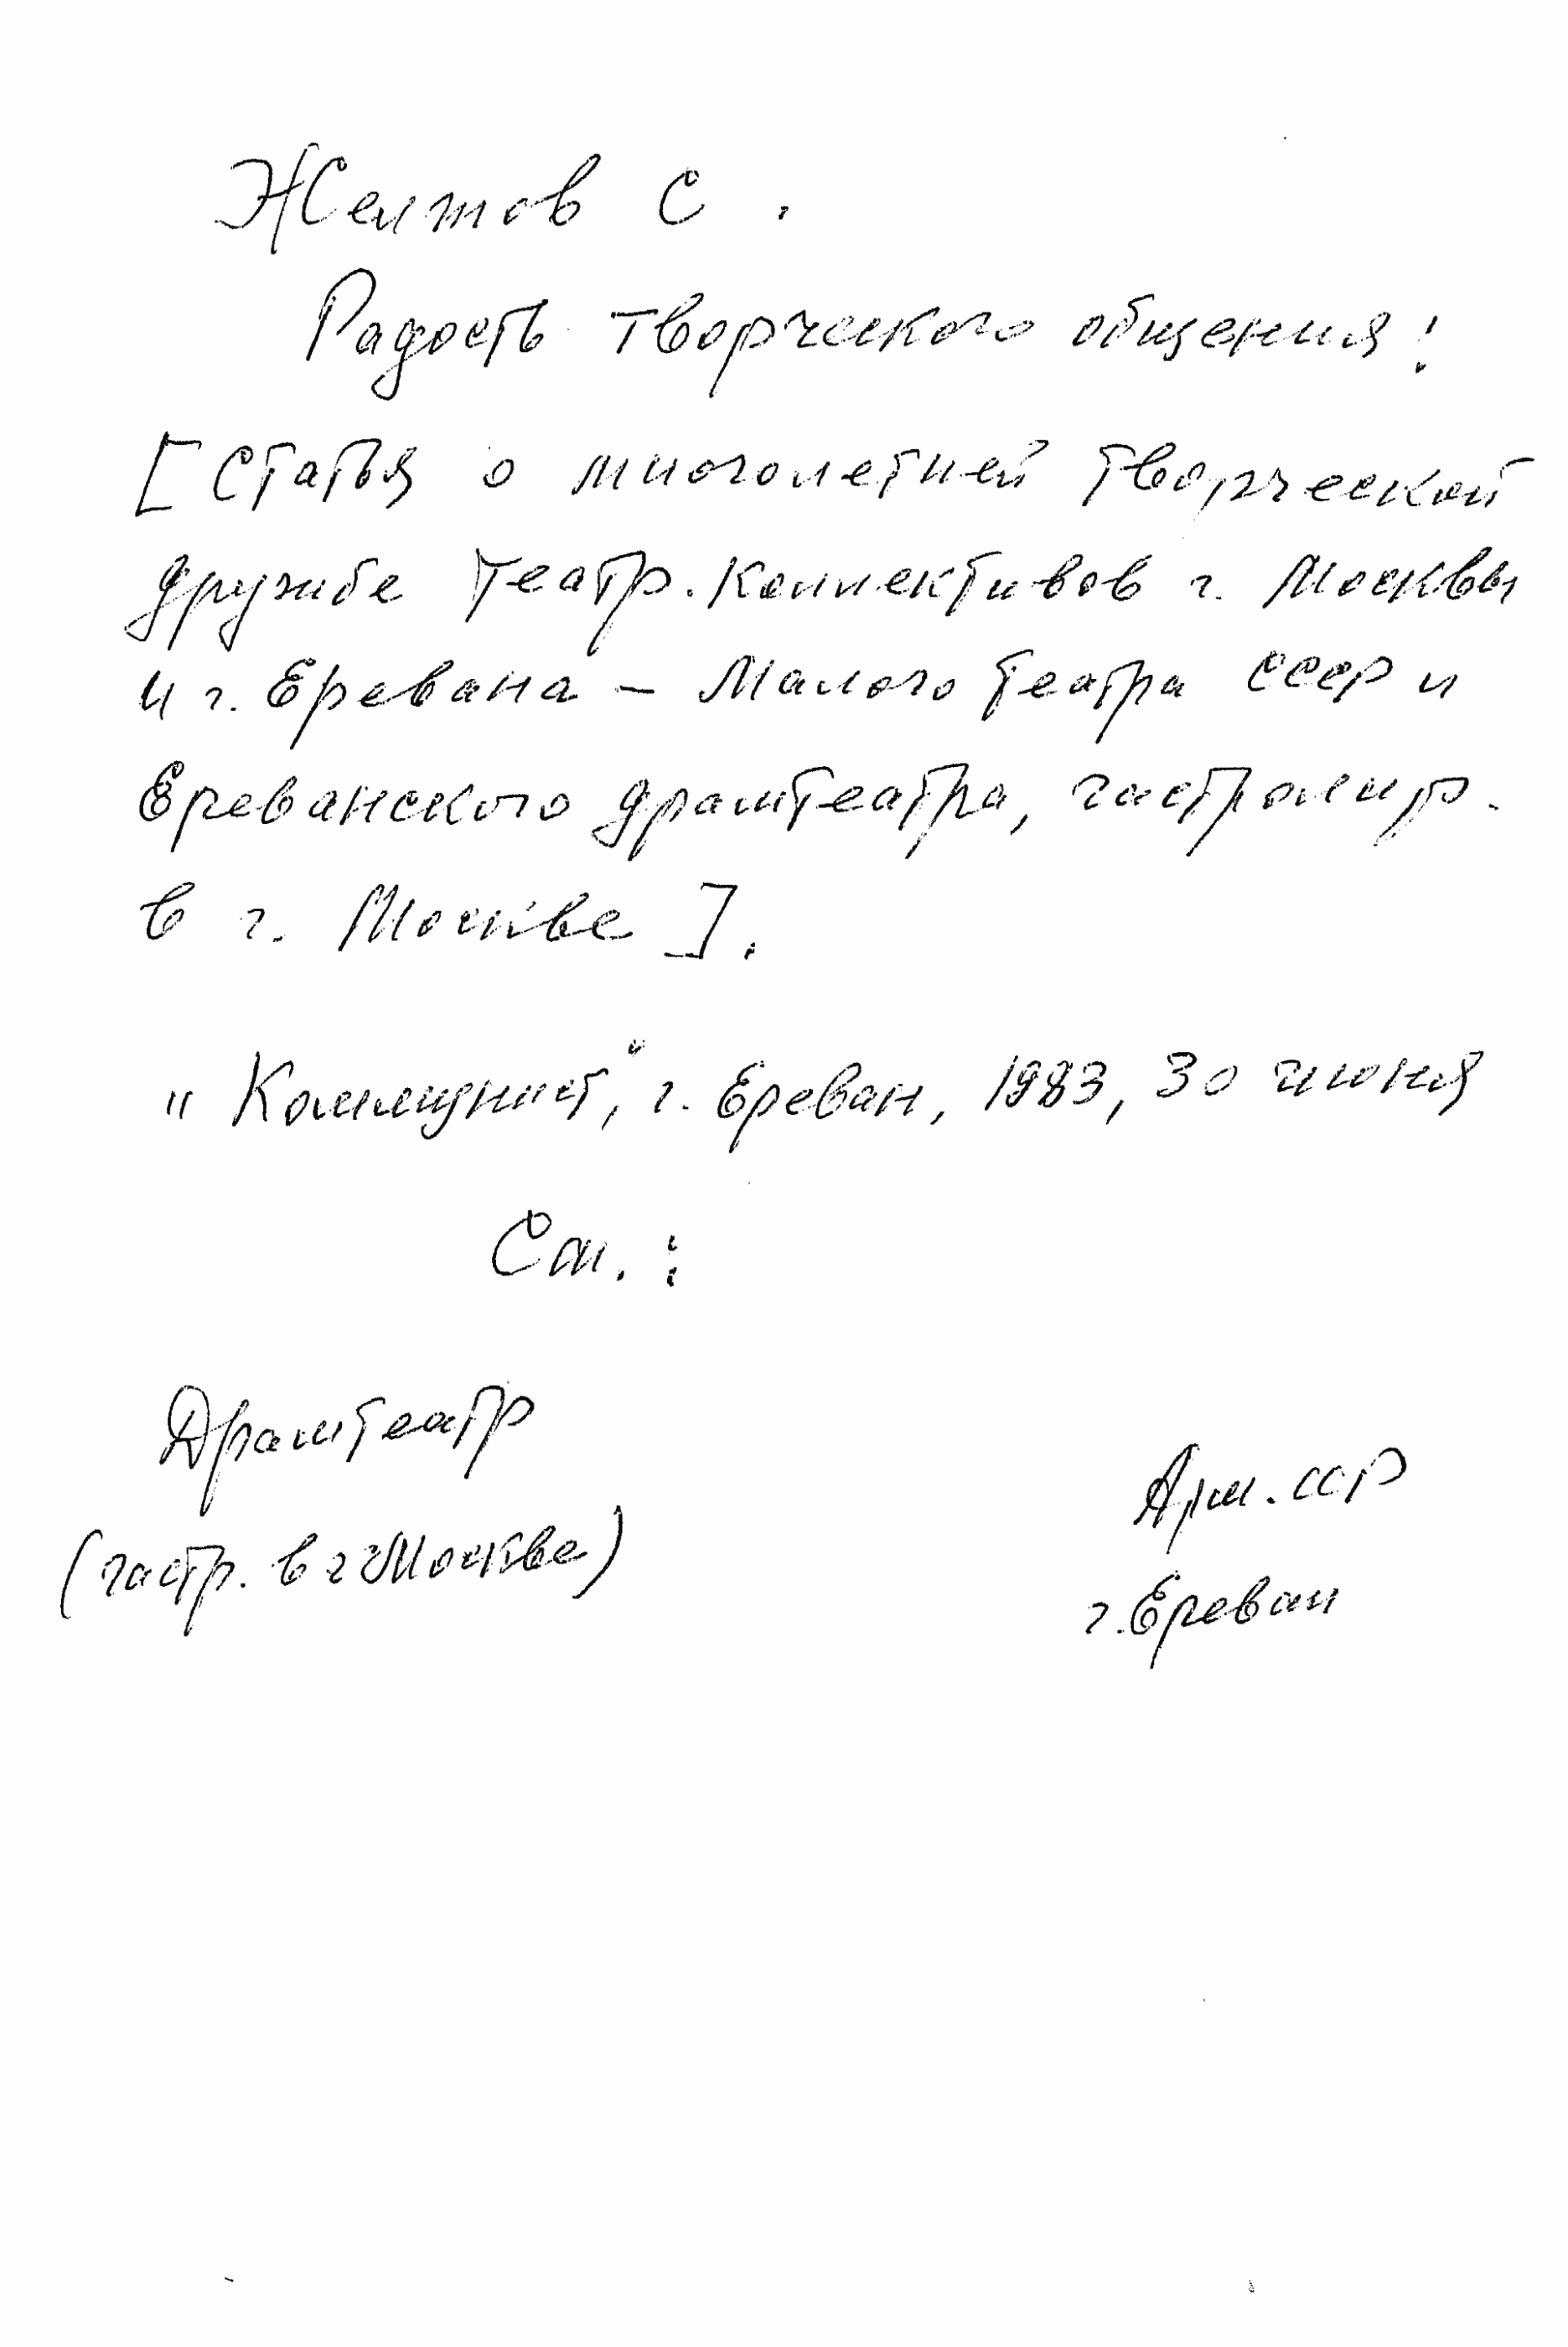 Желтов С.
Радость творческого общения!
[Статья о многолетней творческой
дружбе театр. коллективов г. Москвы
и г. Еревана – Малого театра СССР и
Ереванского драмтеатра, гастролир.
в г. Москве].
"Коммунист", г. Ереван, 1983, 30 июня
См.:
Драмтеатр
(гастр. в г. Москве)
Арм. ССР
г. Ереван